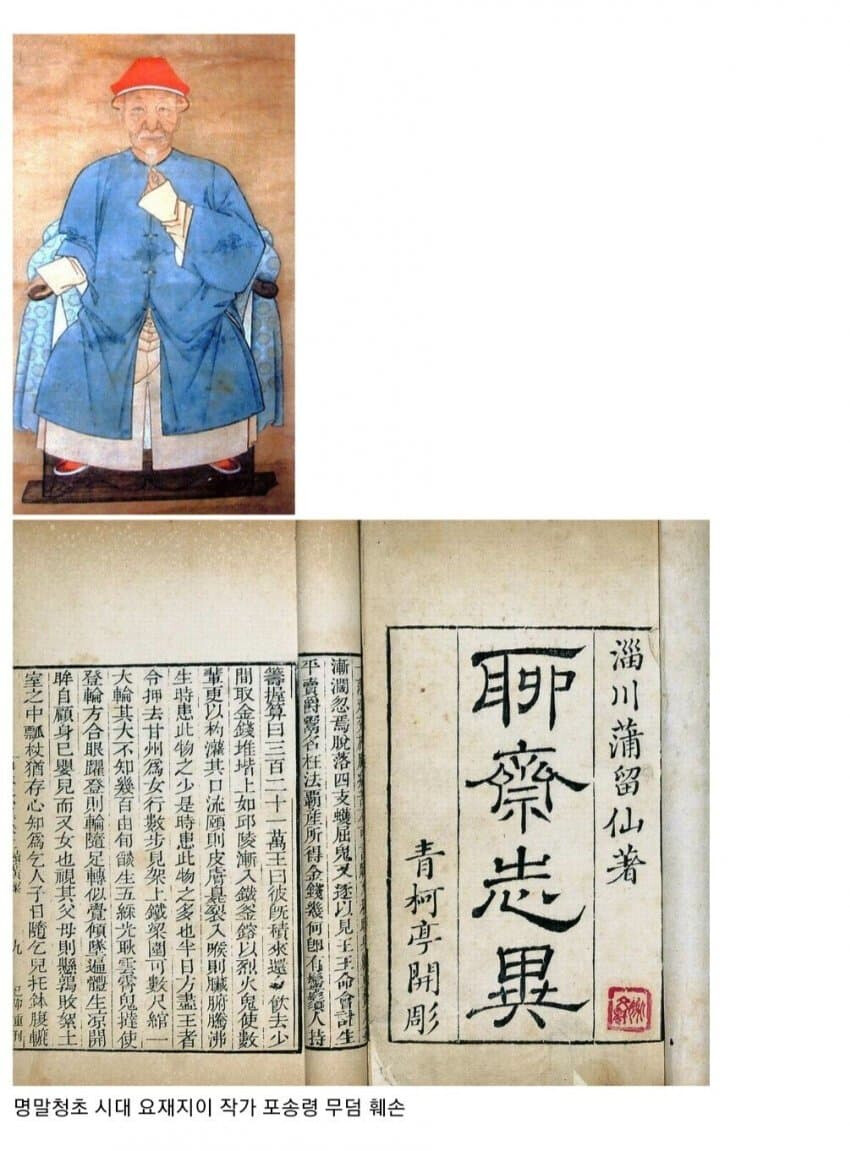 淄川蒲留仙著
聊齋志異
青柯亭開彫
漸濶忽焉脫落四支蠖屈鬼又逐以見王王命會計生
平賣爵鬻名枉法霸産所得金錢幾何即有鬡鬚人持
籌握算曰三百二十一萬王曰彼旣積來還令飲去少
間取金錢堆堦上如邱陵漸入鐵釜鎔以烈火鬼使數
輩更以杓灌其口流頤則皮膚臭裂入喉則臟腑騰沸
生時患此物之少是時患此物之多也半日方盡王者
令押去甘州爲女行數步見架上鐵梁圍可數尺綰一
大輪其大不知幾百由旬燄生五綵光耿雲霄鬼撻使
登輪方合眼躍登則輪隨足轉似覺傾墜遍體生凉開
眸自顧身已嬰兒而又女也視其父母則懸鶉敗絮土
室之中瓢杖猶存心知爲乞人子日隨乞兒托鉢腹轆
九
명말청초 시대 요재지이 작가 포송령 무덤 훼손